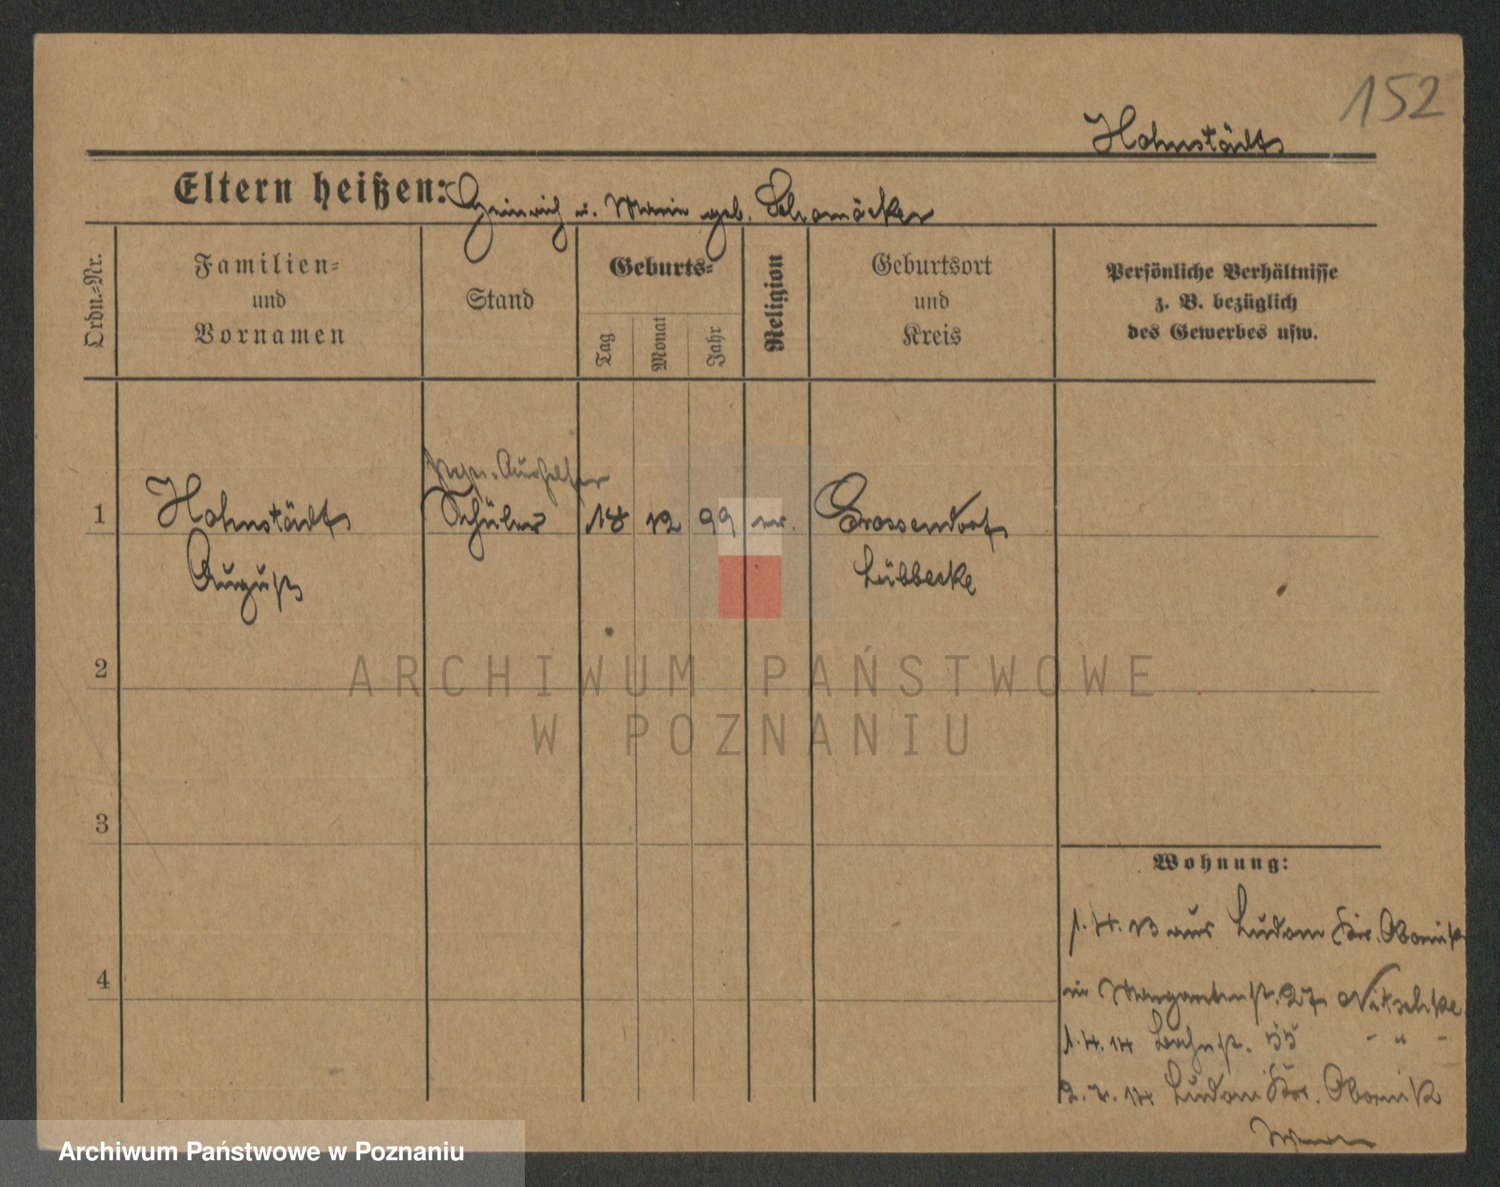 152
Hohnstädt
Eltern heißen: Heinrich u. Marie geb. Schomäcker
Ordn.-Nr.
Familien-
und
Vornamen
Stand
Geburts-
Tag
Monat
Jahr
Religion
Geburtsort
und
Kreis
Persönliche Verhältnisse
z. B. bezüglich
des Gewerbes usw.
1 Hohnstädt Schüler 18 12 99 ev. Grossendorf
August Lübbecke
2
3
4
Wohnung:
1.4.13 aus Ludom Kr. Obornik
in Margaretenst. 27 Nitschke
1.4.14 Bahnst. 55 - " -
2.7.14 Ludom Kr. Obornik
ARCHIWUM PAŃSTWOWE
W POZNANIU
Archiwum Państwowe w Poznaniu